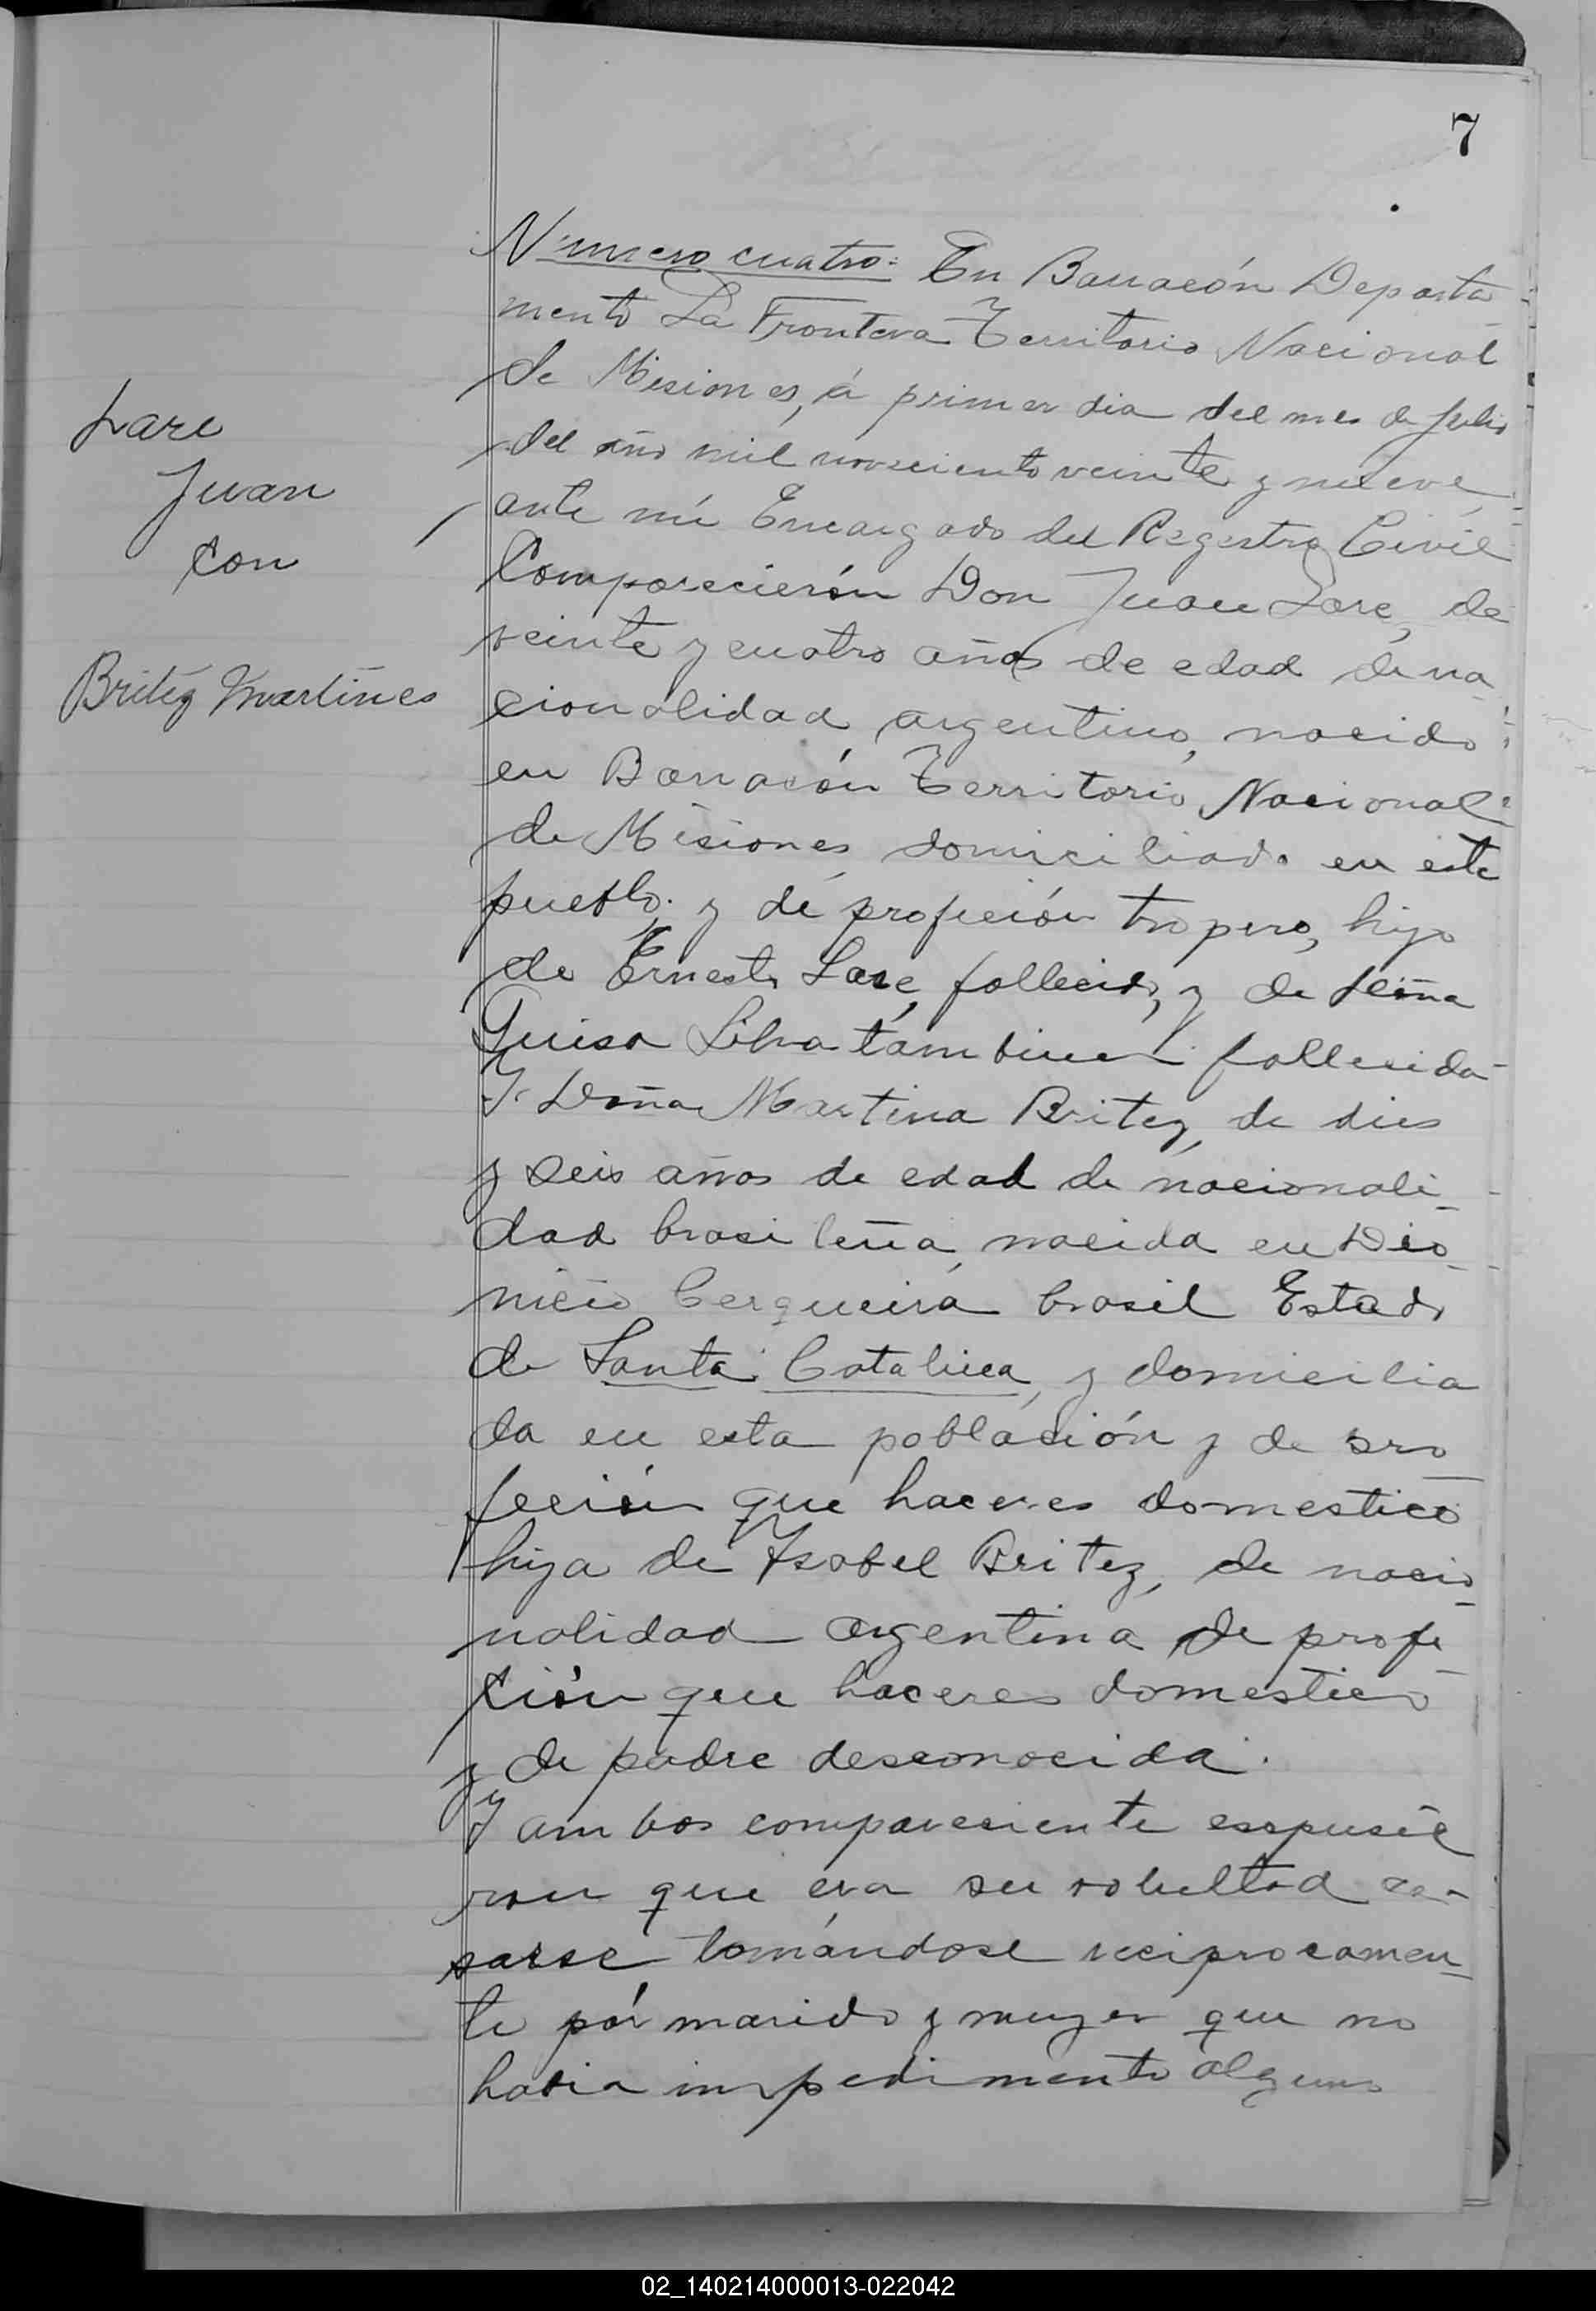 7
Número cuatro: En Barracón Departa
mento La Frontera Territorio Nacional
de Misiones, á primer dia del mes de Julio
del año mil noveciento veinte y nueve
ante mí Encargado del Registro Civil
Comparecierón Don Juan Lare, de
veinte y cuatro años de edad de na
cionalidad argentino, nacido
en Barracón Territorio Nacional
de Misiones domiciliado en este
pueblo. y de profeción tropero, hijo
de Ernesto Lare, fallecido, y de
Silva tambien fallecida
Y Doña Martina Britez, de dies
y seis años de edad de nacionali
dad brasileña, nacida en Dio
nicio Cerqueira brasil Estado
de Santa Catalina, y domicilia
da en esta población y de pro
feción que haceres domestico
hija de Ysabel Britez, de nacio
nalidad argentina de profe
ción que haceres domestico
y de padre desconocida.
Y ambos compareciente esspusie
ron que era su volultad ca-
sarse tomándose reciprocamen
te pór marido y mujer que no
habia impedimento alguno
Lare
Juan
con
Britéz Martines
02_140214000013-022042